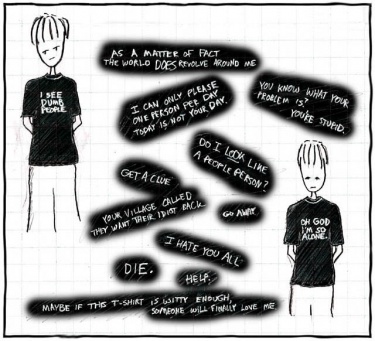 AS A MATTER OF FACT
THE WORLD DOES REVOLVE AROUND ME
I SEE
DUMB
PEOPLE
I CAN ONLY PLEASE
ONE PERSON PER DAY.
TODAY IS NOT YOUR DAY.
YOU KNOW WHAT YOUR
PROBLEM IS?
YOU'RE STUPID.
DO I LOOK LIKE
A PEOPLE PERSON?
GET A CLUE
YOUR VILLAGE CALLED
THEY WANT THEIR IDIOT BACK
GO AWAY.
OH GOD
I'M SO
ALONE.
I HATE YOU ALL
DIE.
HELP.
MAYBE IF THIS T-SHIRT IS WITTY ENOUGH,
SOMEONE WILL FINALLY LOVE ME